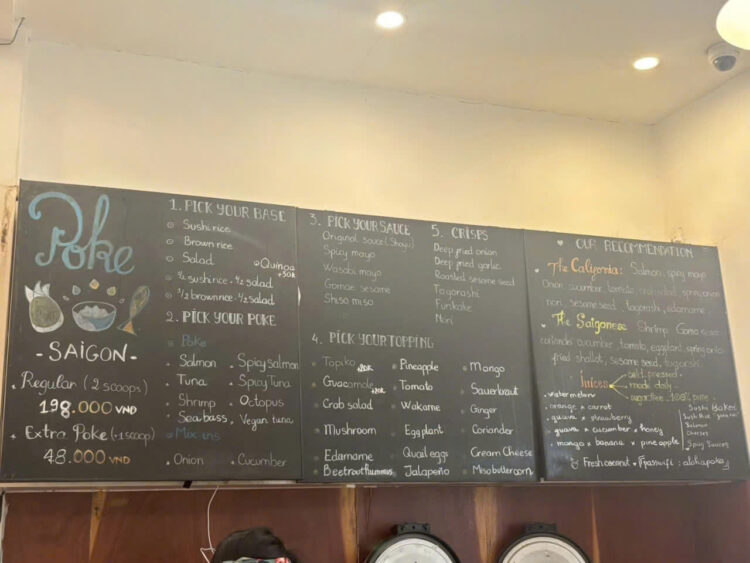 Poke
- SAIGON -
Regular (2 scoops)
198.000 VND
+ Extra Poke (+1 scoop)
48.000 VND
1. PICK YOUR BASE
Sushi rice
Brown rice
Salad
Quinoa
+50K
1/2 sushi rice - 1/2 salad
1/2 brown rice - 1/2 salad
2. PICK YOUR POKE
Poke
Salmon Spicy salmon
Tuna Spicy Tuna
Shrimp Octopus
Sea bass Vegan tuna
Mix-ins
Onion Cucumber
3. PICK YOUR SAUCE
Original sauce (Shoyu)
Spicy mayo
Wasabi mayo
Gomae sesame
Shiso miso
5. CRISPS
Deep fried onion
Deep fried garlic
Roasted sesame seed
Togarashi
Furikake
Nori
4. PICK YOUR TOPPING
Topiko Pineapple Mango
Guacamole Tomato Sauerkraut
Crab salad Wakame Ginger
Mushroom Eggplant Coriander
Edamame Quail eggs Cream Cheese
Beetroot hummus Jalapeño Miso butter corn
OUR RECOMMENDATION
The California: Salmon, spicy mayo
Onion cucumber tomato, crab salad, spring onion
nori, sesame seed, togarashi, edamame.
The Saigonese Shrimp Goma
coriander cucumber, tomato, eggplant, spring onio
fried shallot, sesame seed, togarashi
Juices
cold pressed
made daily
sugar free, 100% pure
watermelon
orange + carrot
guava + strawberry
guava + cucumber + honey
mango + banana + pineapple
Fresh coconut
Sushi Baked
Salmon
Cheeses
Spicy Sauces